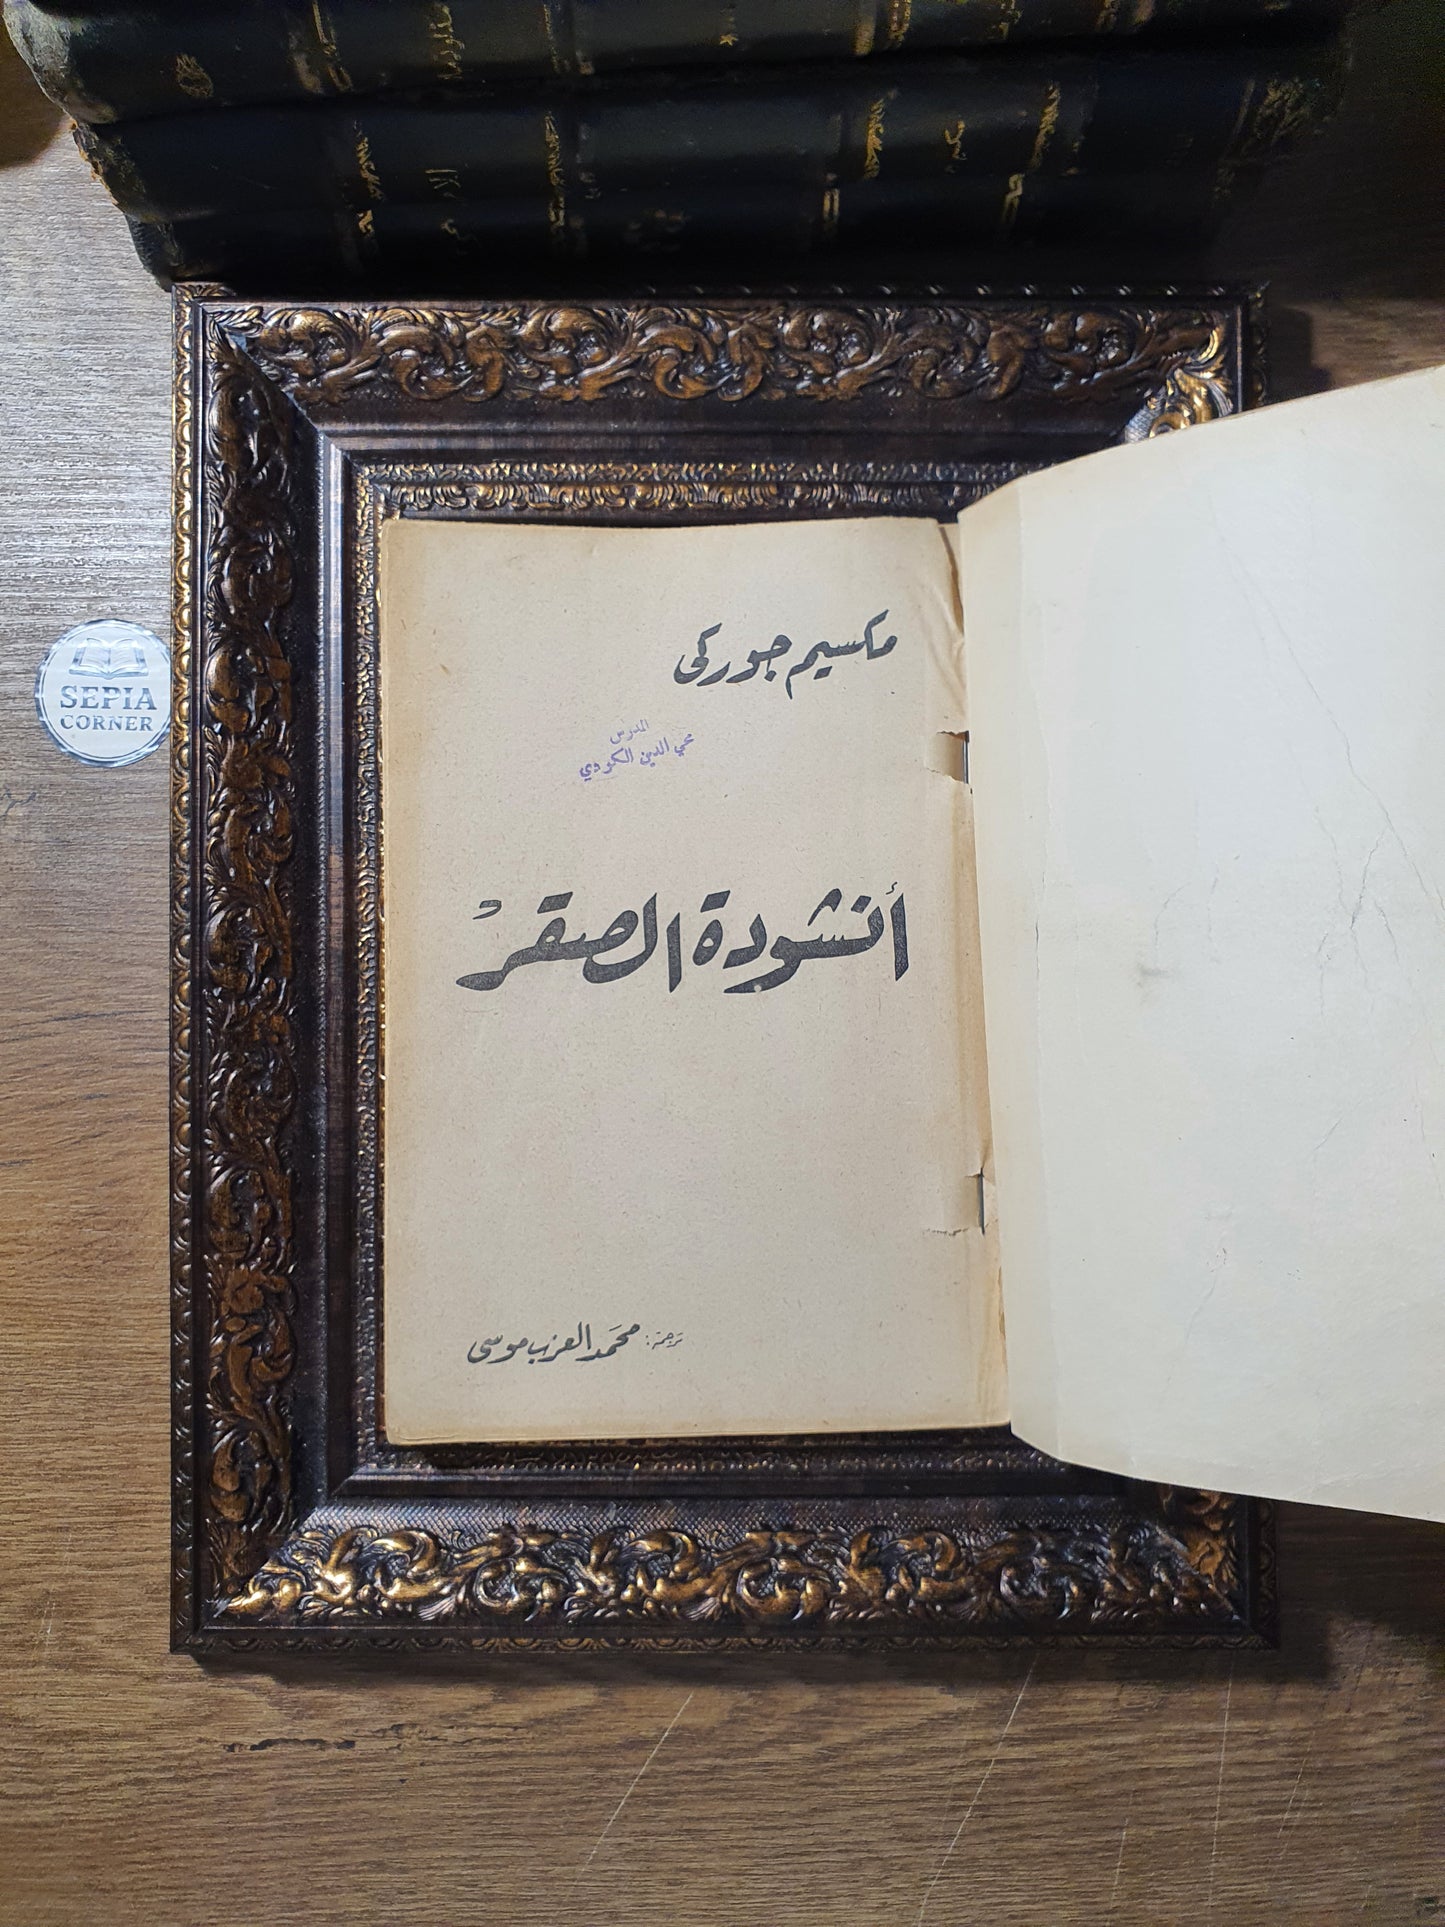 مكسيم جوركى
المدرس
محي الدين الكردي
أنشودة الصقر
ترجمة: محمد العزب موسى
SEPIA
CORNER